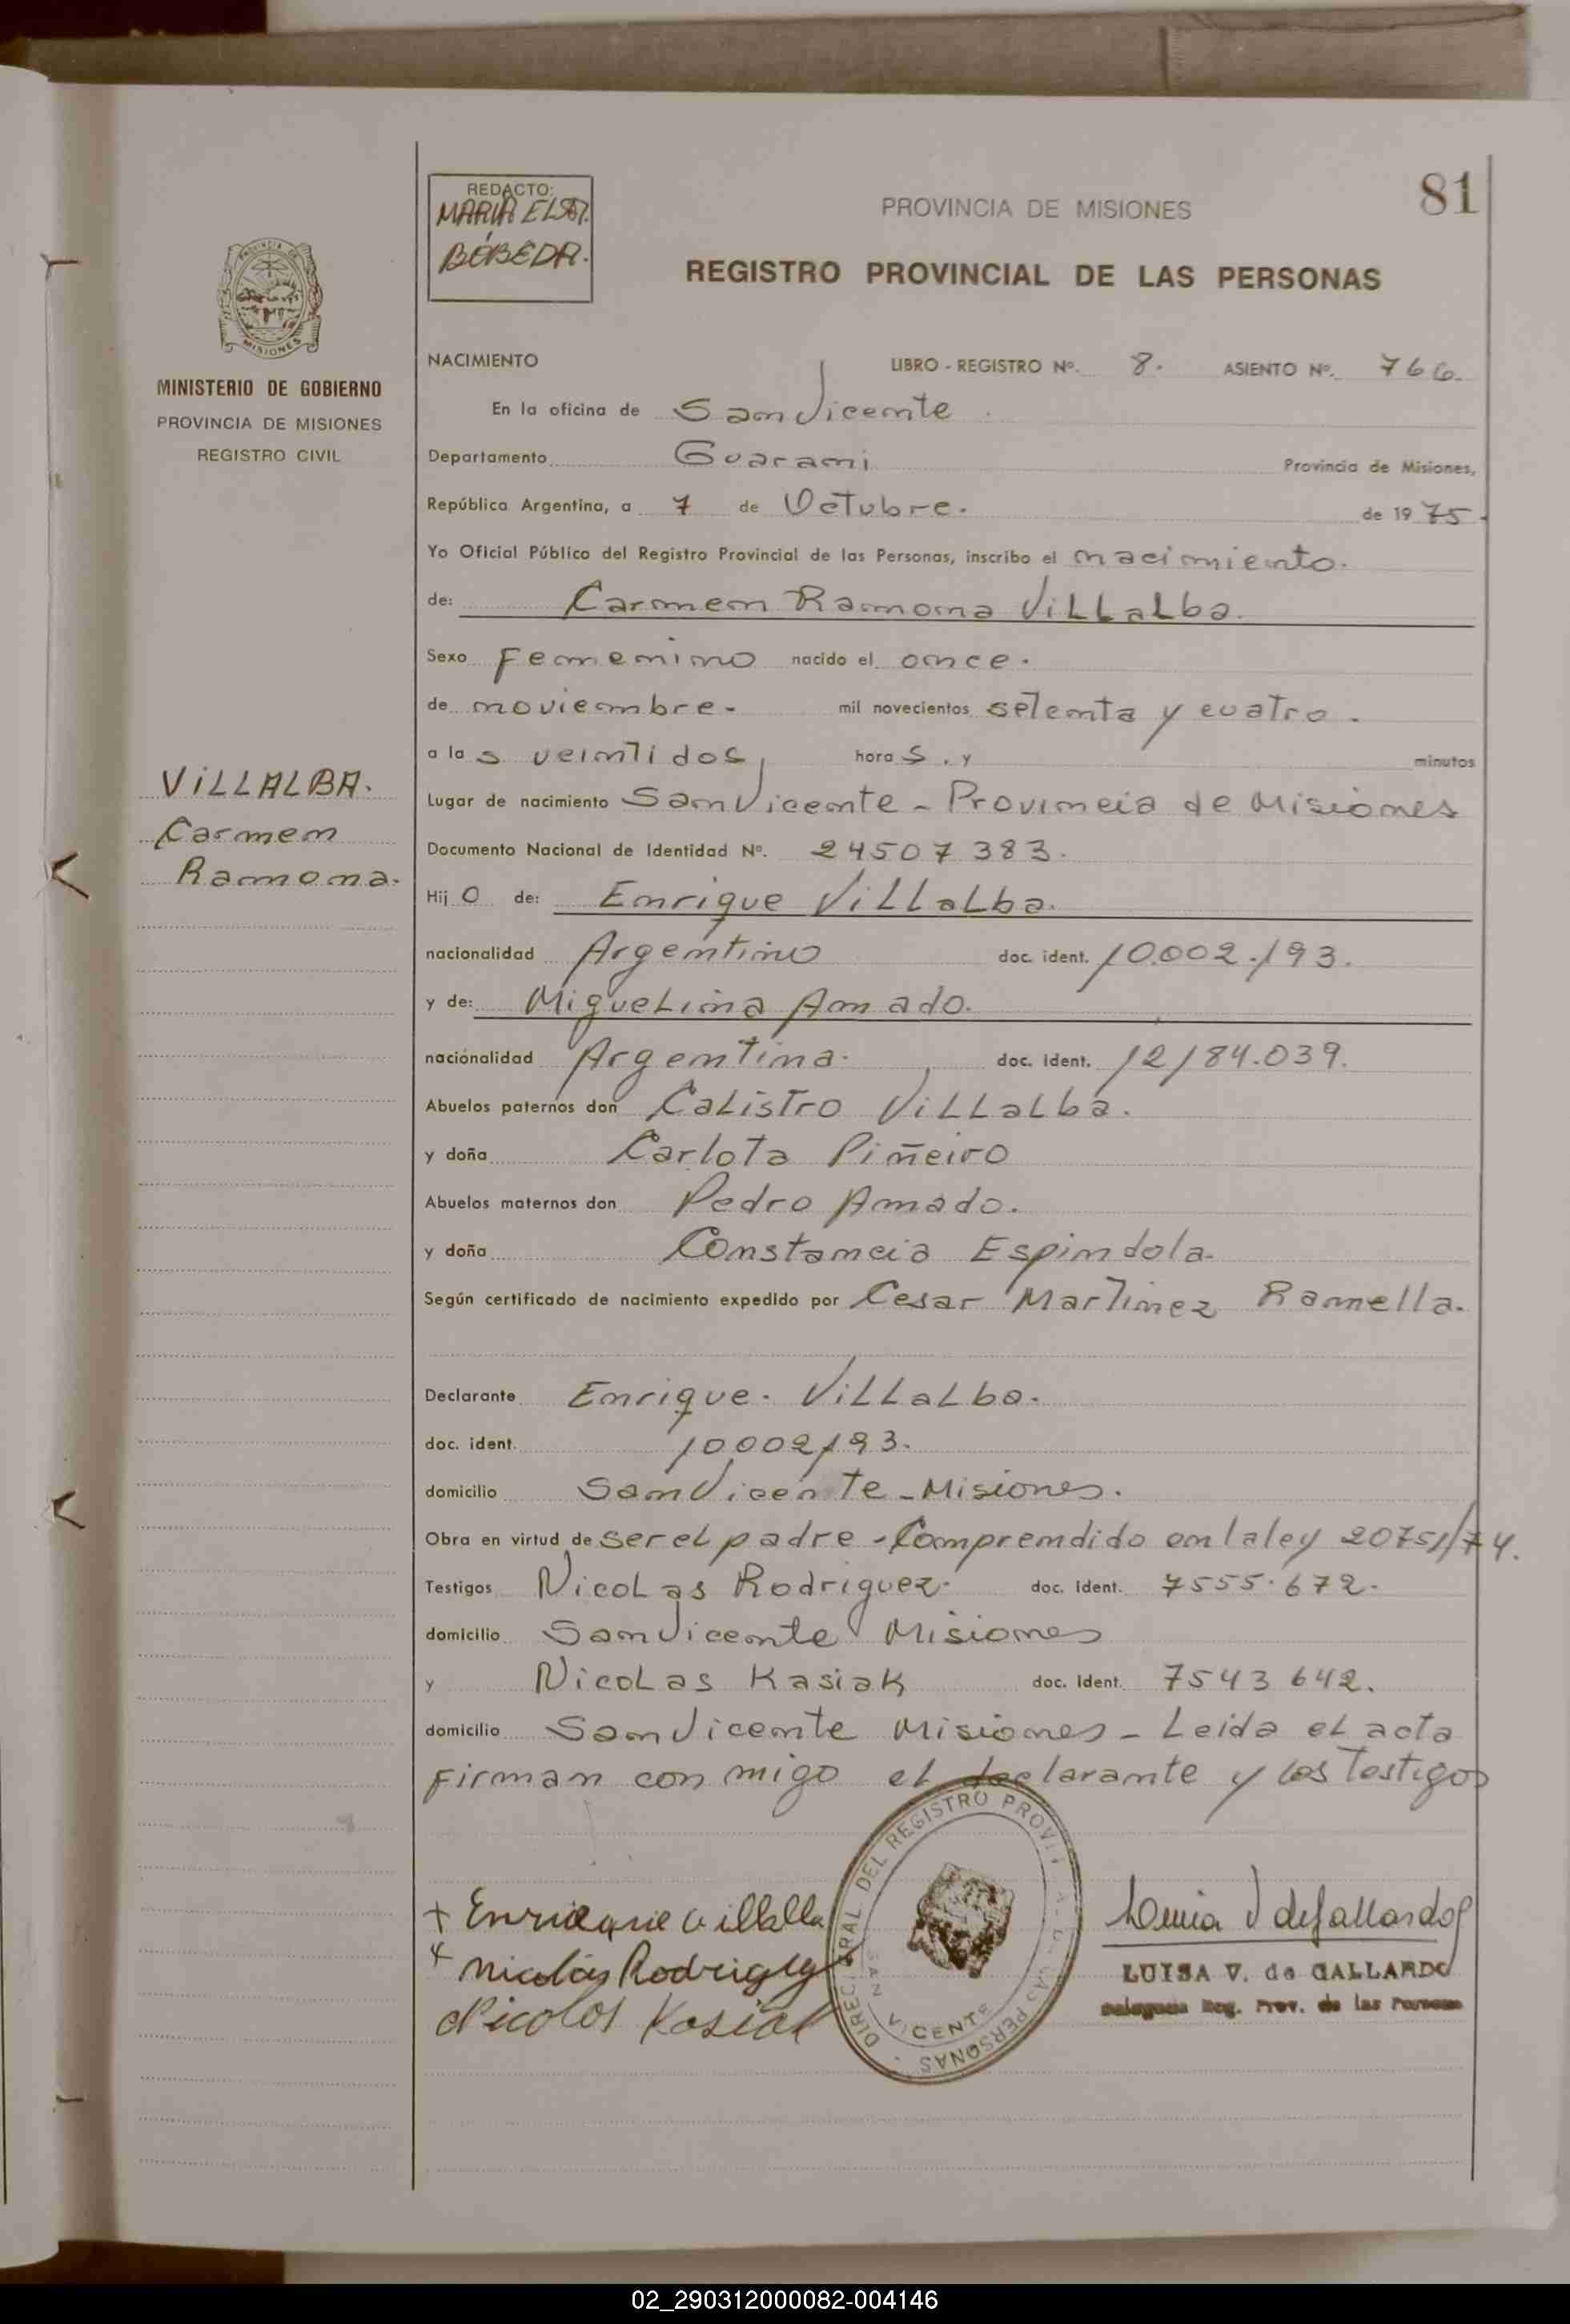 81
REDACTO:
MARIA ELSA.
BÓBEDA.
PROVINCIA DE MISIONES
REGISTRO PROVINCIAL DE LAS PERSONAS
PROVINCIA DE
MISIONES
MINISTERIO DE GOBIERNO
PROVINCIA DE MISIONES
REGISTRO CIVIL
VILLALBA.
Carmen
Ramona.
NACIMIENTO LIBRO - REGISTRO Nº. 8. ASIENTO Nº. 766.
En la oficina de San Vicente
Departamento Guarani Provincia de Misiones,
República Argentina, a 7 de Octubre. de 1975.
Yo Oficial Público del Registro Provincial de las Personas, inscribo el nacimiento.
de: Carmen Ramona Villalba.
Sexo Femenino nacido el once.
de noviembre. mil novecientos setenta y cuatro.
a las veintidos horas, y minutos
Lugar de nacimiento San Vicente - Provincia de Misiones
Documento Nacional de Identidad Nº. 24507383.
Hijo de: Enrique Villalba.
nacionalidad Argentino doc. ident. 10.002.193.
y de: Miguelina Amado.
nacionalidad Argentina. doc. ident. 12184.039.
Abuelos paternos don Calistro Villalba.
y doña Carlota Piñeiro
Abuelos maternos don Pedro Amado.
y doña Constancia Espindola.
Según certificado de nacimiento expedido por Cesar Martinez Ramella.
Declarante Enrique. Villalba.
doc. ident. 10002193.
domicilio San Vicente - Misiones.
Obra en virtud de ser el padre - Comprendido en la ley 20751/74.
Testigos Nicolas Rodriguez. doc. ident. 7555.672.
domicilio San Vicente Misiones
y Nicolas Kasiak doc. Ident. 7543642.
domicilio San Vicente Misiones - Leida el acta
firman con migo el declarante y los Testigos
+ Enrique Villalba
+ Nicolás Rodriguez
Nicolas Kasiak
DIREC. GRAL DEL REGISTRO PROVINCIAL DE LAS PERSONAS
SAN VICENTE
Luisa V de Gallardo
LUISA V. de GALLARDO
Delegada Reg. Prov. de las Personas
02_290312000082-004146